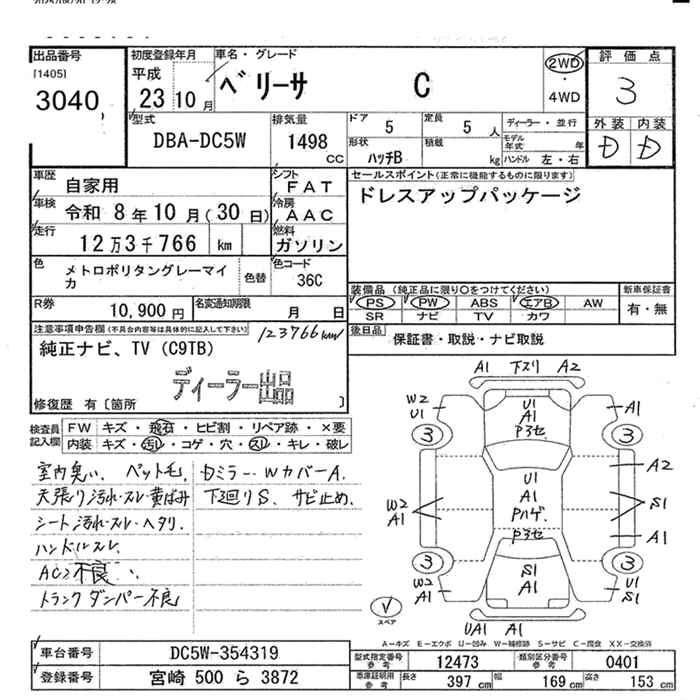 出品番号
[1405]
3040
初度登録年月
平成
23 10 月
車名・グレード
ベリーサ C
2WD
・
4WD
評価点
3
外装 内装
D D
型式
DBA-DC5W
排気量
1498 CC
ドア 5
定員 5 人
形状 ハッチB
積載 kg
ディーラー・並行
モデル年式 年
ハンドル 左・右
車歴 自家用
シフト FAT
車検 令和 8年10月(30日)
冷房 AAC
走行 12万3千766 km
燃料 ガソリン
色 メトロポリタングレーマイカ
色替
色コード 36C
R券 10,900円
名変通知期限 月 日
セールスポイント(正常に機能するものに限ります)
ドレスアップパッケージ
装備品 (純正品に限り○をつけてください)
PS PW ABS エアB AW
SR ナビ TV カワ
新車保証書
有・無
後日品 保証書・取説・ナビ取説
注意事項申告欄(不具合内容等は具体的に記入して下さい)
123766km
純正ナビ、TV (C9TB)
ディーラー出品
修復歴 有〔箇所 〕
検査員記入欄
FW キズ・飛石・ヒビ割・リペア跡・×要
内装 キズ・汚レ・コゲ・穴・スレ・キレ・破レ
室内臭い、ペット毛
天張り汚れ・スレ・黄ばみ
シート汚れ・スレ・ヘタリ
ハンドルスレ
不良
トランクダンパー不良
DミラーWカバーA.
下廻りS、サビ止め、
A1 下スリ A2
W2
U1
A1
3
3
U1
A1
P3セ
A2
U1
A1
Pハゲ.
W2
A1
S1
A1
P3セ
3
3
S1
A1
W2
A1
U1
S1
スペア
UA1 A1
A-キズ E-エクボ U-凹み W-補修跡 S-サビ C-腐食 XX-交換済
車台番号 DC5W-354319
登録番号 宮崎 500 ら 3872
型式指定番号 参考 12473
類別区分番号 参考 0401
車庫証明用 参考 長さ 397 cm 幅 169 cm 高さ 153 cm